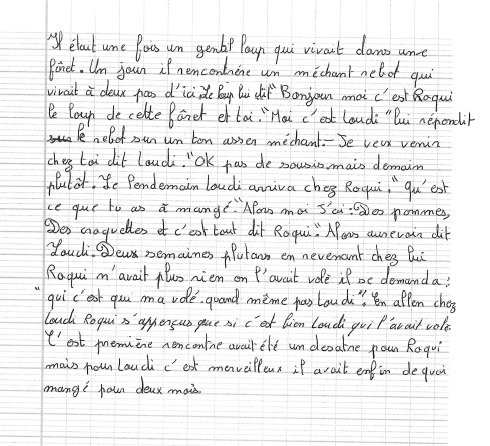 Il était une fois un gentil loup qui vivait dans une
fôret. Un jour il rencontrére un méchant rebot qui
vivait à deux pas d'ici le loup lui dit "Bonjour moi c'est Roqui
le loup de cette fôret et toi." Moi c'est Loudi" lui répondit
le rebot sur un ton asser méchant. - Je veux venir
chez toi dit Loudi. "OK pas de sousis mais demain
plutôt. Le lendemain Loudi arriva chez Roqui. "Qu'est
ce que tu as à mangé." Alors moi J'ai : Des pommes,
Des craquettes et c'est tout dit Roqui." Alors aurevoir dit
Loudi. Deux semaines plutars en revenant chez lui
Roqui n'avait plus rien on l'avait volé il se demanda :
"qui c'est qui ma volé. quand même pas Loudi". En allen chez
Loudi Roqui s'apperçus que si c'est bien Loudi qui l'avait volé.
C'est première rencontre avait été un desatre pour Roqui
mais pour Loudi c'est merveilleux il avait enfin de quoi
mangé pour deux mois.